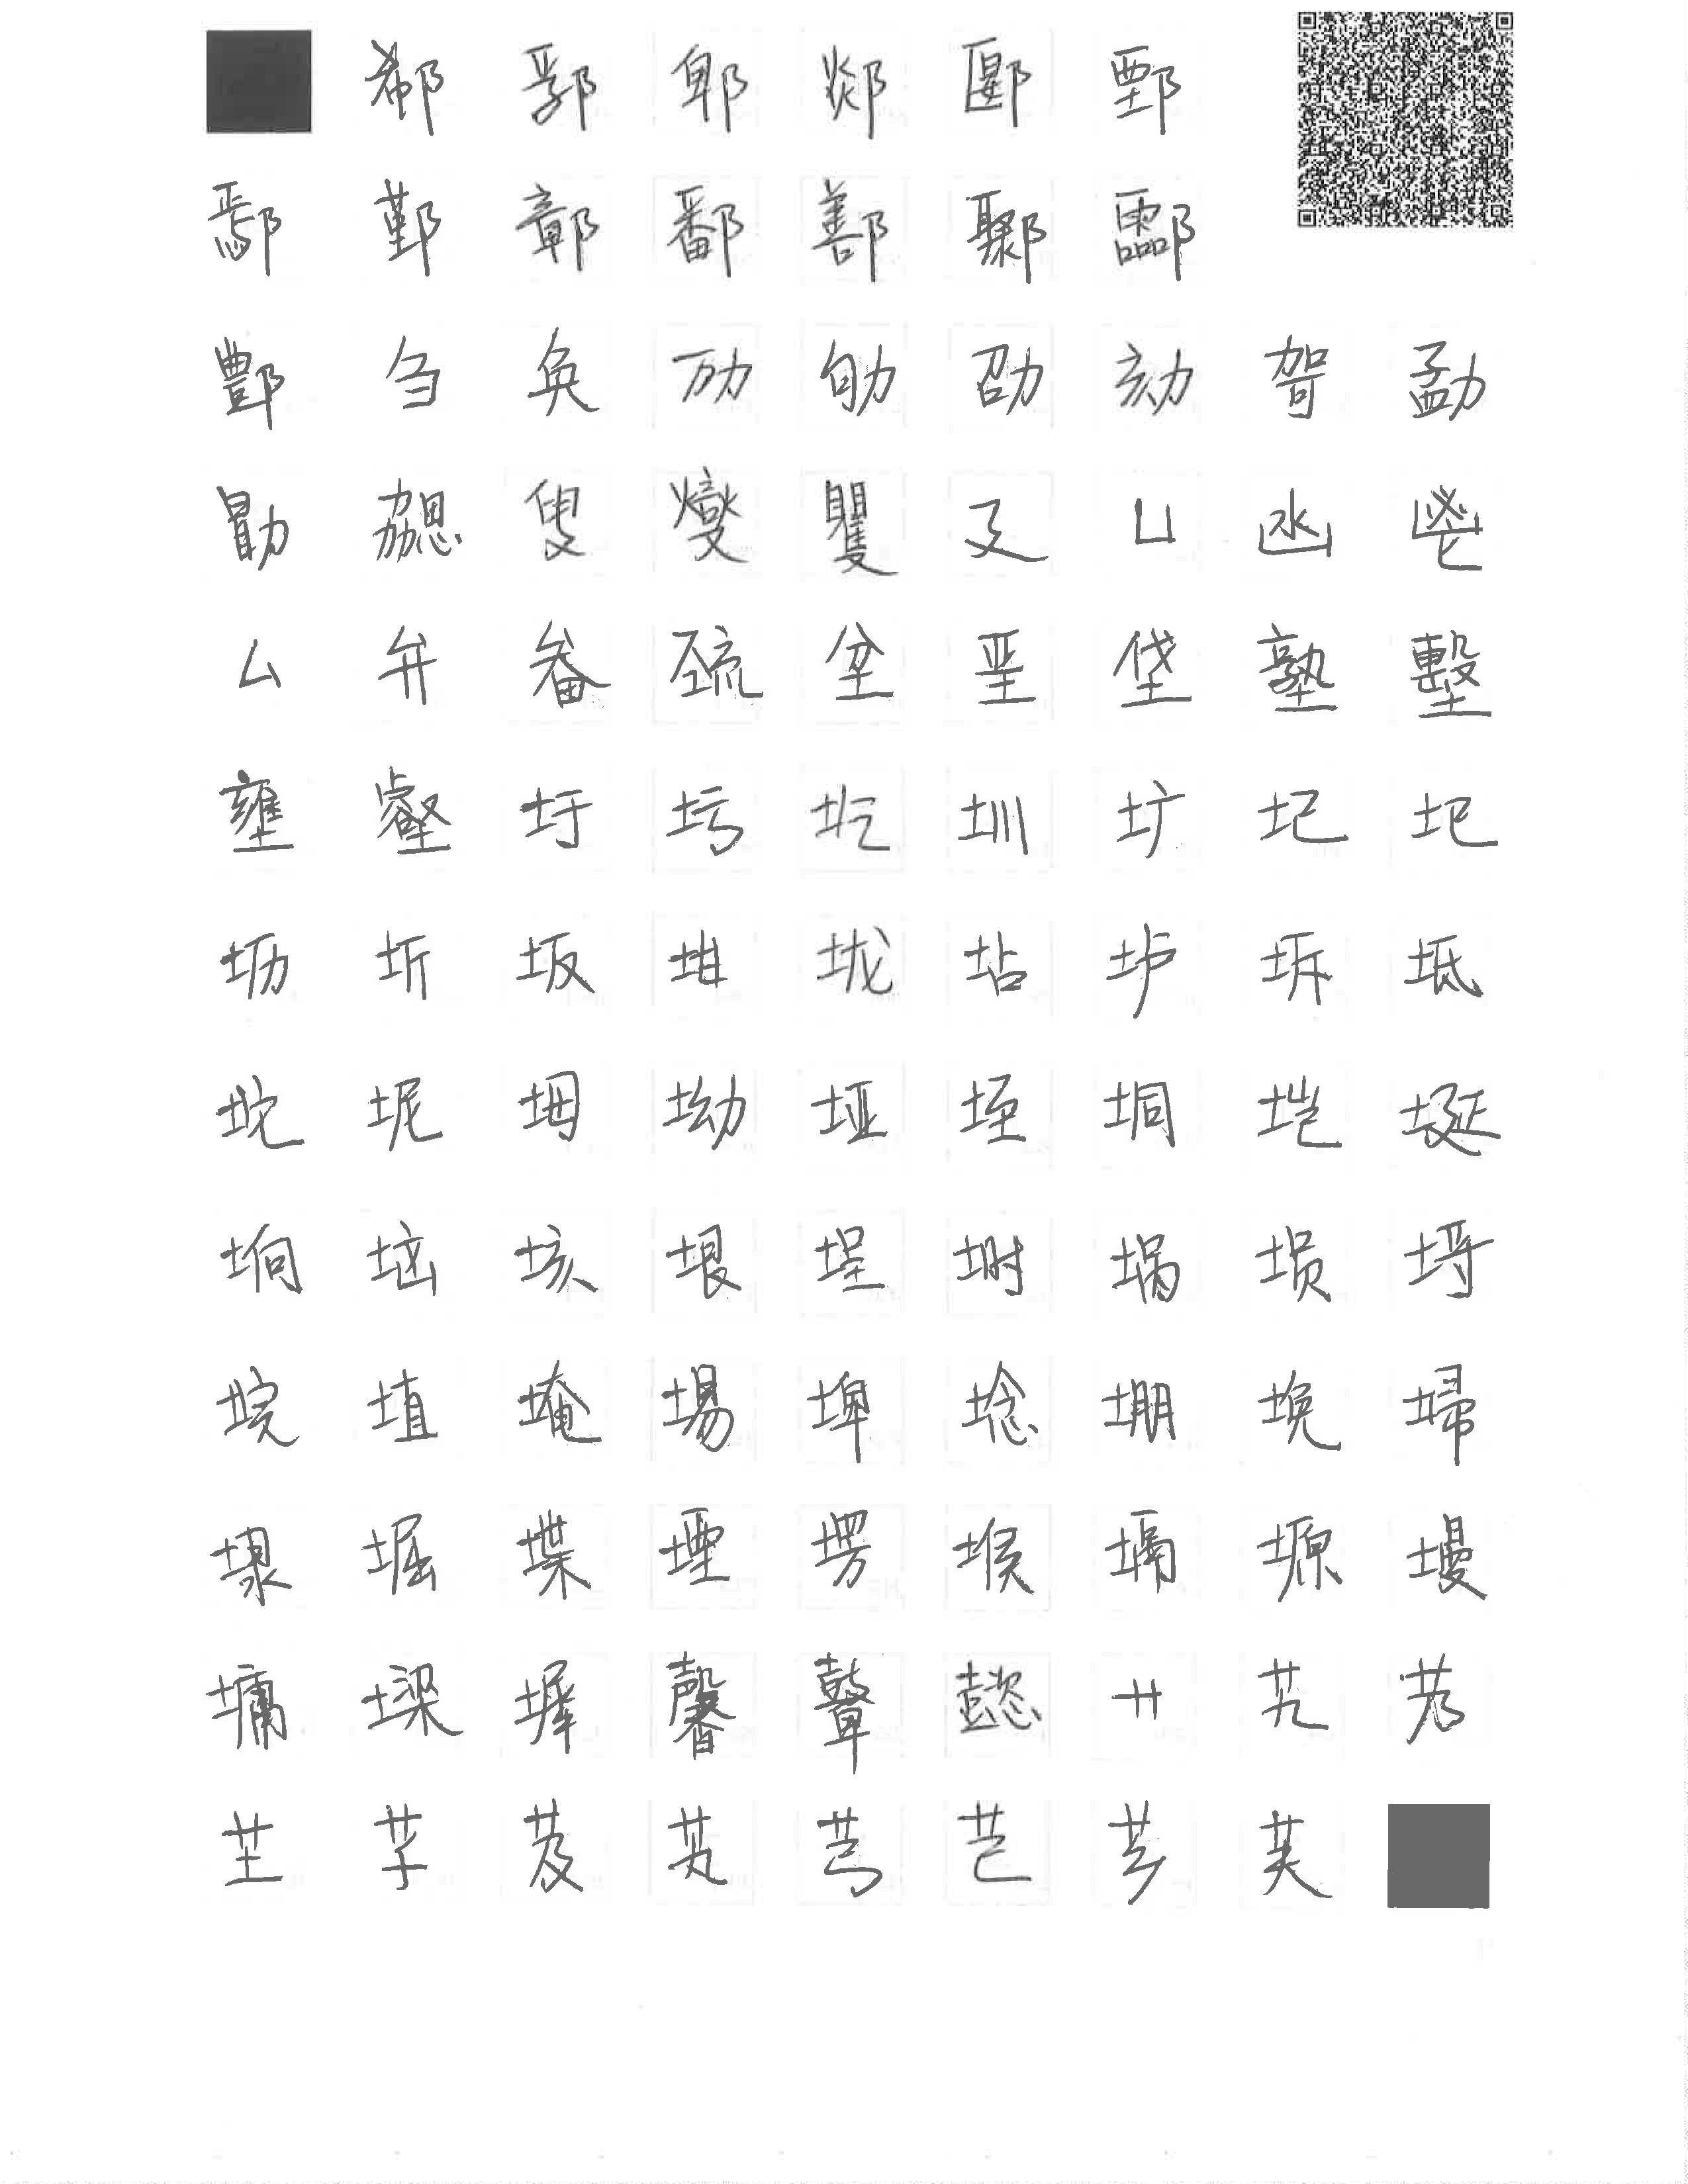 郗郛郫郯郾鄄
鄢鄞鄣鄱鄯鄹酃
酆刍奂劢劬劭劾哿勐
勖勰叟燮矍廴凵凼鬯
厶弁畚巯坌垩垡塾墼
壅壑圩圬圪圳圹圮圯
坜圻坂坩垅坫垆坼坻
坨坭坶坳垭垤垌垲埏
垧垴垓垠埕埘埚埙埒
垸埴埯埸埤埝堋堍埽
埭堀堞堙塄堠塥塬墁
墉墚墀馨鼙懿艹艽艿
芏芊芨芄芎芑芗芙